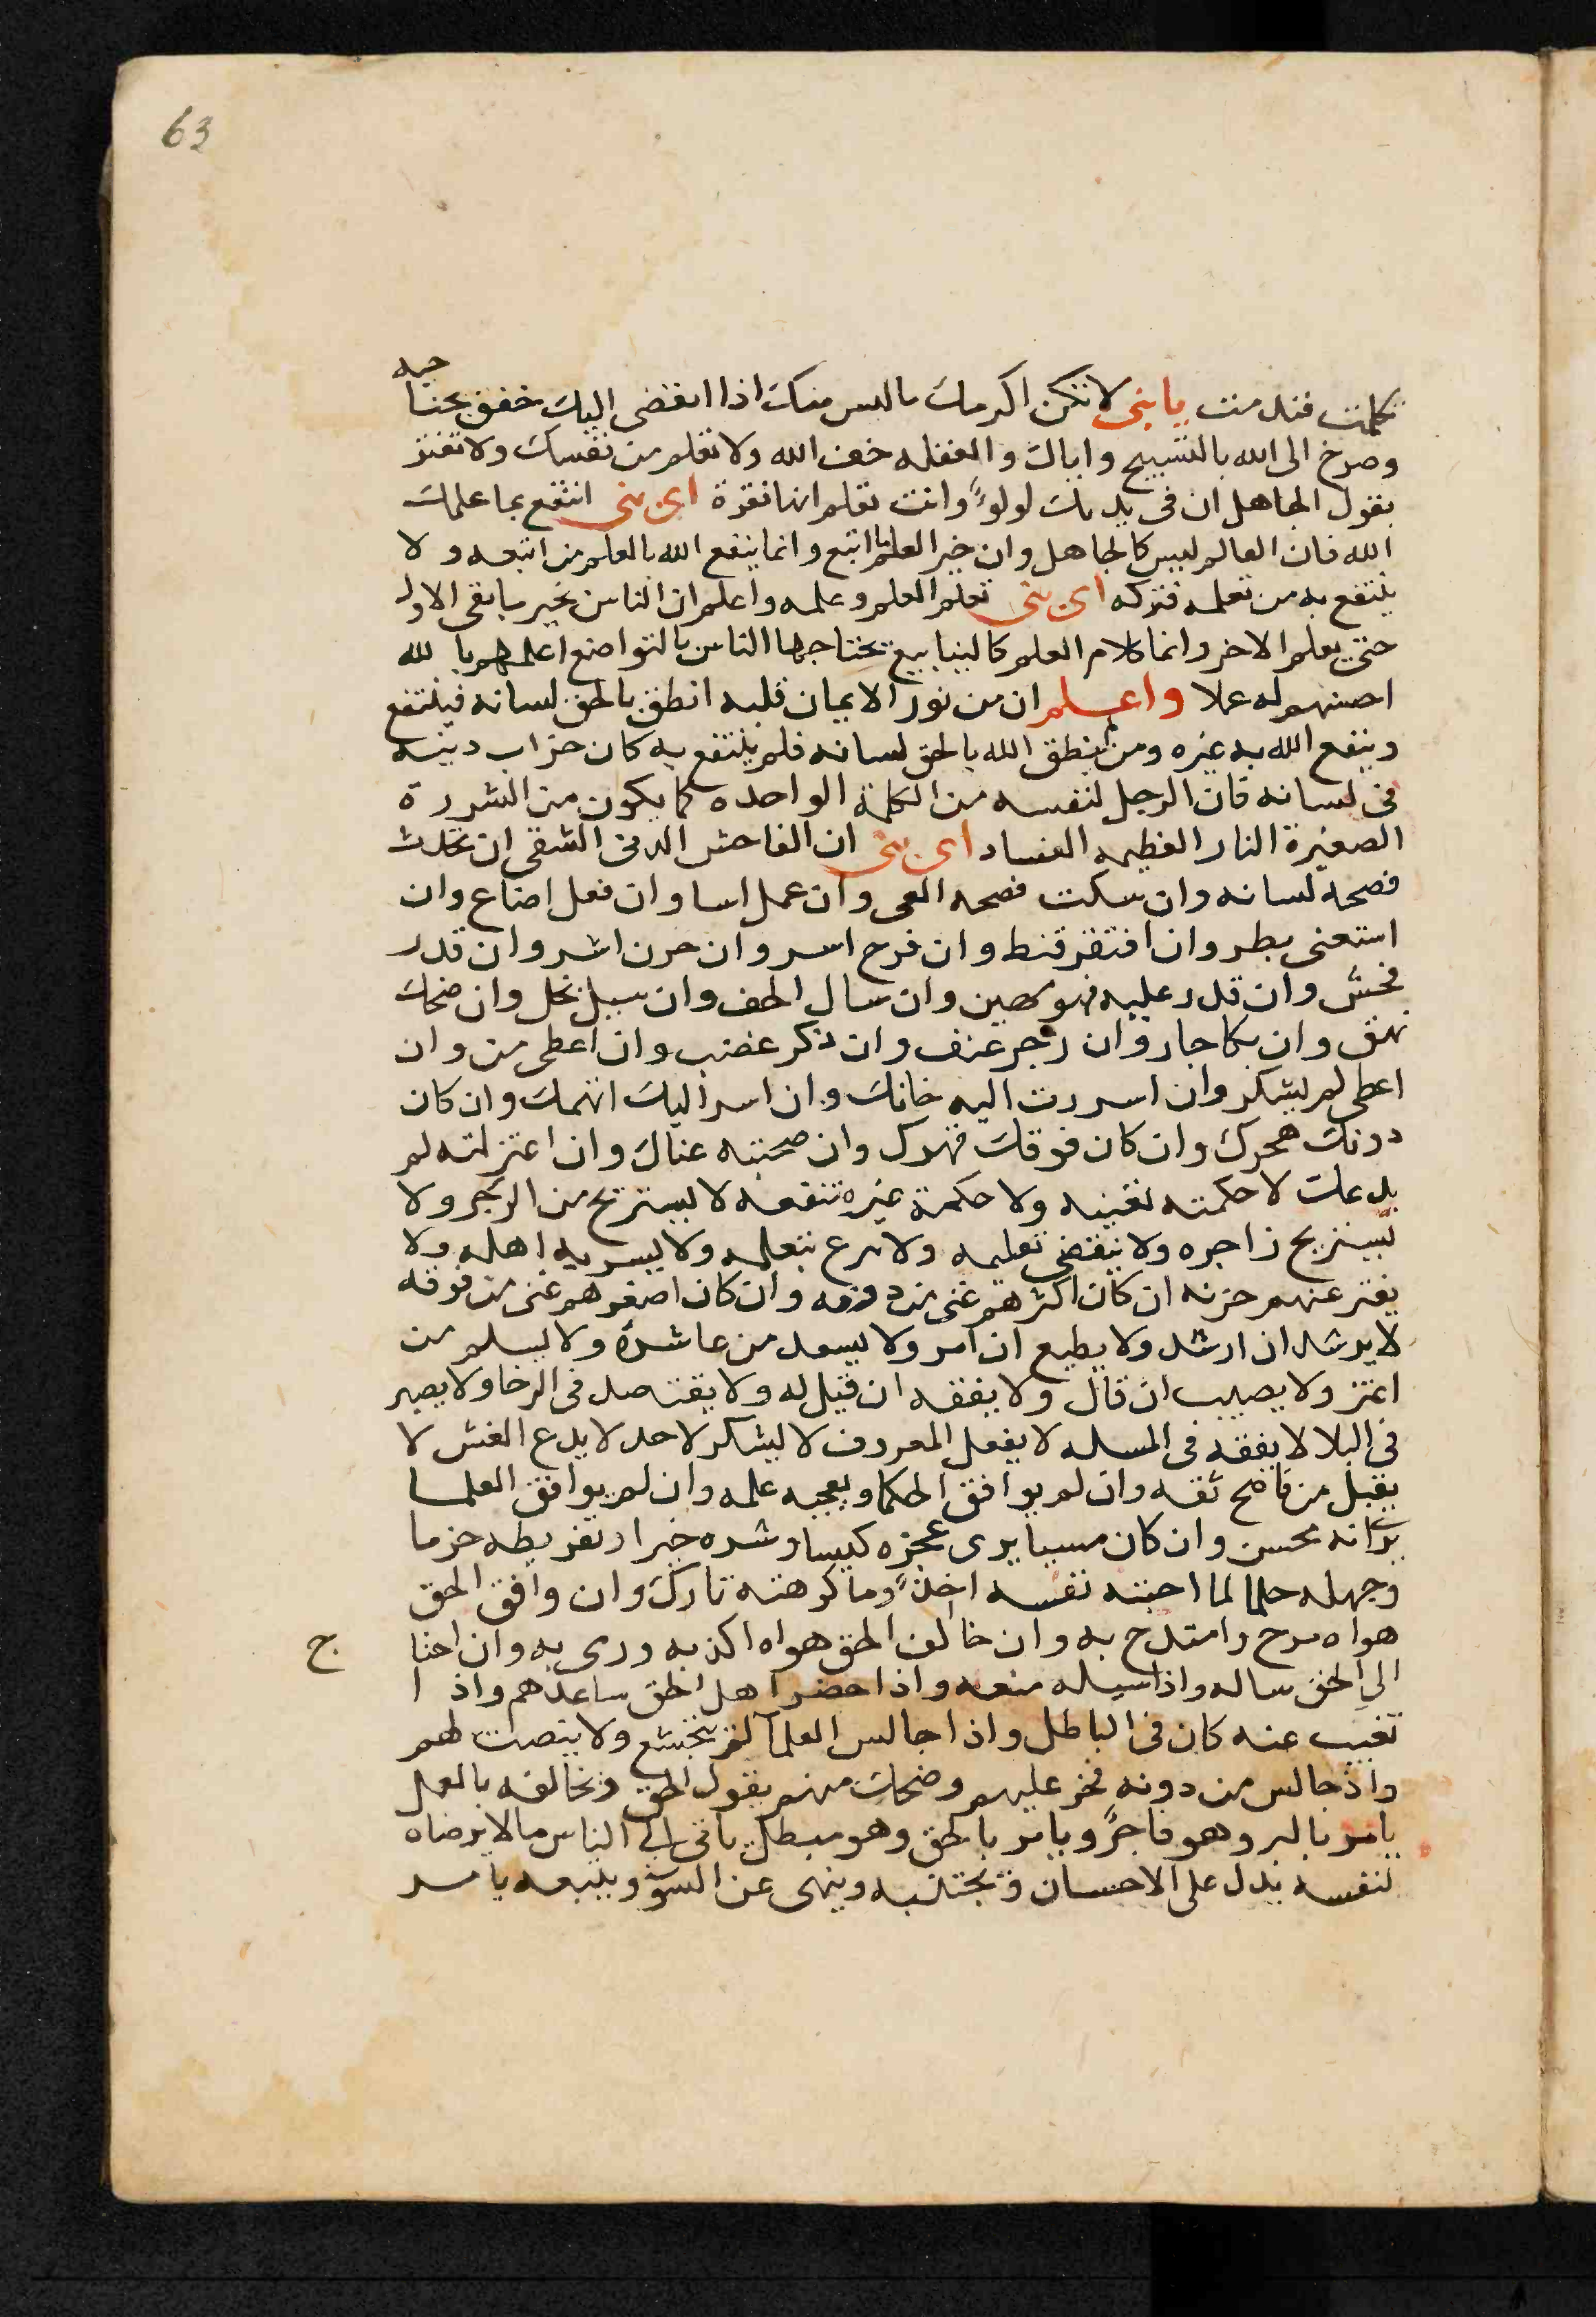 63
تكلمت فندمت يا بنى لا تكن اكرمك بالليس منك اذا انقضى اليك خفق بجناحيه
وصرخ الى الله بالتسبيح واياك والغفله خف الله ولا تعلم من نفسك ولا تغتر
بقول الجاهل ان فى يديك لولوً وانت تعلم انها نقرة اى بنى انتفع بما علمك
الله فان العالم ليس كالجاهل وان خير العلم ما اتبع وانما ينفع الله بالعلم من اتبعه ولا
ينتفع به من تعلمه فتركه اى بنى تعلم العلم وعلمه واعلم ان الناس بخير ما بقى الاول
حتى يعلم الاخر وانما كلام العلم كالينابيع تحتاجها الناس بالتواضع اعلمهم بالله
احسنهم له عملا واعلم ان من نور الايمان قلبه انطق بالحق لسانه فينتفع
وينفع الله به غيره ومن ينطق الله بالحق لسانه فلم ينتفع به كان خراب دينه
فى لسانه فان الرجل لنفسه من الكلمة الواحده كما يكون من الشررة
الصغيرة النار العظيمه الفساد اى بنى ان الفاحش الدنى الشقى ان تحدث
فضحه لسانه وان سكت فضحه العى وان عمل اسا وان فعل اضاع وان
استغنى بطر وان افتقر قنط وان فرح اسر وان حزن اشر وان قدر
فحش وان قدر عليه فهو مهين وان سال الحف وان سيل بخل وان ضحك
نهق وان بكا جار وان زجر عنف وان ذكر غضب وان اعطى من وان
اعطى لم يشكر وان اسررت اليه خانك وان اسر اليك اتهمك وان كان
دونك هجرك وان كان فوقك قهرك وان صحبته عناك وان اعتزلته لم
يدعك لا حكمته تغنيه ولا حكمة غيره تنفعه لا يستريح من الزجر ولا
يستريح زاجره ولا ينقضى تعليمه ولا يرع بتعلمه ولا يسر به اهله ولا
يفتر عنهم حزنه ان كان اكثرهم غنى من دونه وان كان اصغرهم غنى من فوقه
لا يرشد ان ارشد ولا يطيع ان امر ولا يسعد من عاشره ولا يسلم من
اغتر ولا يصيب ان قال ولا يفقه ان قيل له ولا يقتصد فى الرخا ولا يصبر
فى البلا لا يفقه فى المسله لا يفعل المعروف لا يشكر لاحد لا يدع الغش لا
يقبل من ناصح ثقه وان لم يوافق الحكما ويعجبه علمه وان لم يوافق العلما
يرى انه محسن وان كان مسيا يرى عجزه كيسا وشره خيرا وتفريطه حزما
وجهله حلما لما احبته نفسه اخذً وما كرهته تارك وان وافق الحق
هواه مدح وامتدح به وان خالف الحق هواه اكذبه ورى به وان احتاج
الى الحق ساله واذا سيله منعه واذا حضر اهل الحق ساعدهم واذا
تغيب عنه كان فى الباطل واذا جالس العلما لم يخشع ولا ينصت لهم
واذ جالس من دونه فخر عليهم وضحك منهم يقول الحق ويخالفه بالعمل
يامر بالبر وهو فاجرً ويامر بالحق وهو مبطل ياتى الى الناس مالا يرضاه
لنفسه يدل على الاحسان ويجتنبه وينهى عن السوٓ ويتبعه يامر